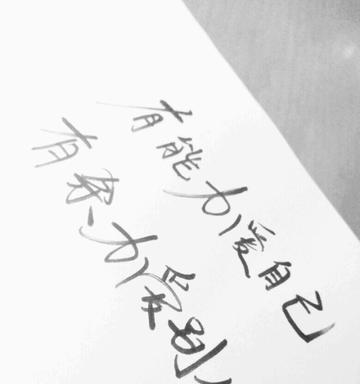 有能力爱自己
有余力爱别